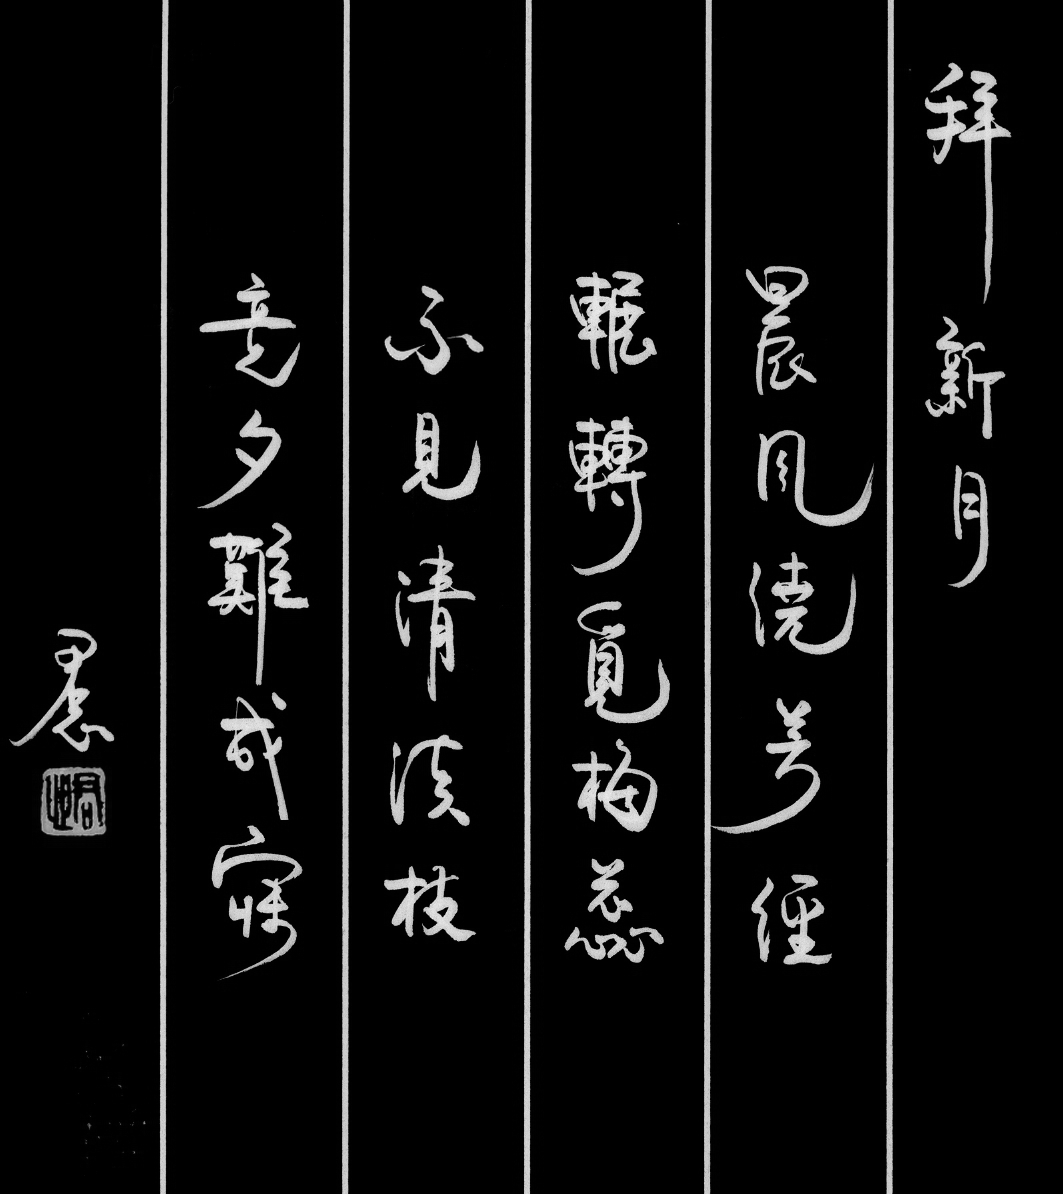 拜新月
晨風繞芳徑
輾轉覓梅蕊
不見清淡枝
竟夕難成寐